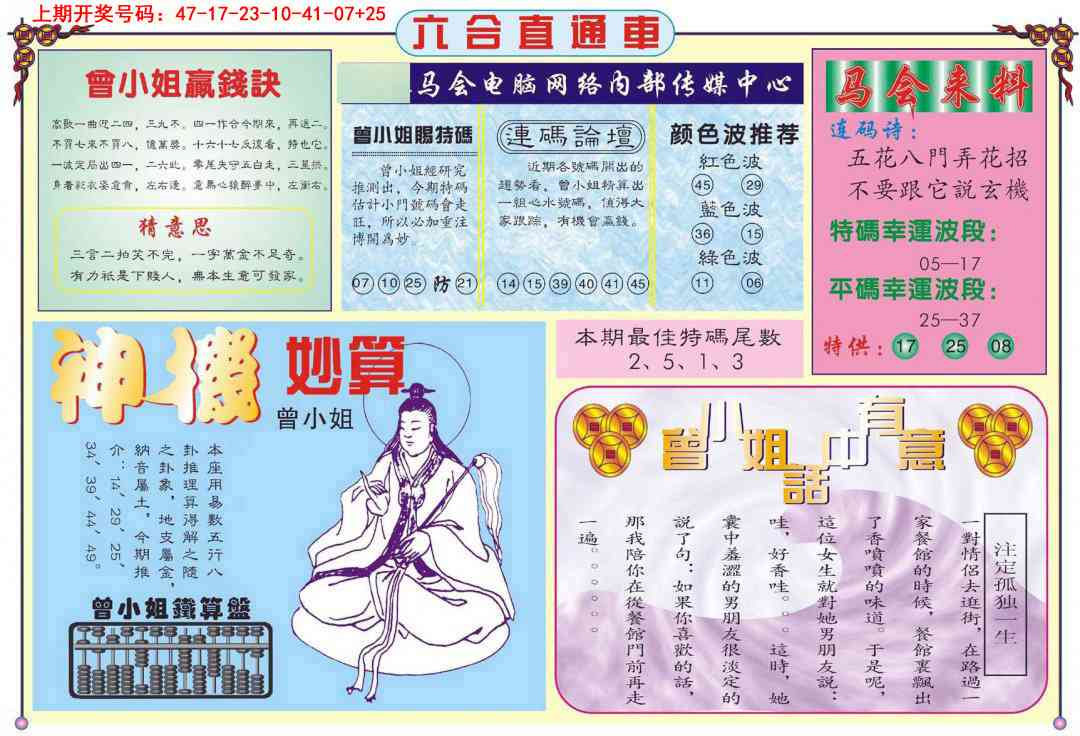 上期开奖号码：47-17-23-10-41-07+25
六合直通車
曾小姐贏錢訣
不買七來不買八，億萬獎。十六十七反讓看，特也它。
一波定局出四一，二六此。零尾失守五白走，三星拱。
猜意思
三言二拍笑不完，一字萬金不足奇。
有力衹是下賤人，無本生意可發家。
马会电脑网络内部传媒中心
曾小姐賜特碼
曾小姐經研究
推測出，今期特碼
估計小門號碼會走
旺，所以必加重注
博開為妙。
07 10 25 防 21
連碼論壇
近期各號碼開出的
趨勢看，曾小姐精算出
一組心水號碼，值得大
家跟踪，有機會贏錢。
14 15 39 40 41 45
颜色波推荐
紅色波
45 29
藍色波
36 15
綠色波
11 06
马会来料
连码诗：
五花八門弄花招
不要跟它説玄機
特碼幸運波段：
05—17
平碼幸運波段：
25—37
特供：17 25 08
本期最佳特碼尾數
2、5、1、3
神機妙算
曾小姐
本座用易數五行八
卦推理算得解之隨
之卦象，地支屬金，
納音屬土，今期推
介：14、29、25、
34、39、44、49。
曾小姐鐵算盤
曾小姐話中有意
注定孤独一生
一對情侶去逛街，在路過一
家餐館的時候，餐館裏飄出
了香噴噴的味道。于是呢，
這位女生就對她男朋友説：
哇，好香哇。。。這時，她
囊中羞澀的男朋友很淡定的
説了句：如果你喜歡的話，
那我陪你在從餐館門前再走
一遍。。。。。。